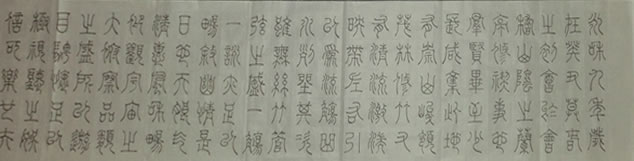 永和九年歲
在癸丑暮春
之初會於會
稽山陰之蘭
亭修禊事也
群賢畢至少
長咸集此地
有崇山峻領
茂林修竹又
有清流激湍
映帶左右引
以為流觴曲
水列坐其次
雖無絲竹管
弦之盛一觴
一詠亦足以
暢敘幽情是
日也天朗氣
清惠風和暢
仰觀宇宙之
大俯察品類
之盛所以遊
目騁懷足以
極視聽之娛
信可樂也夫